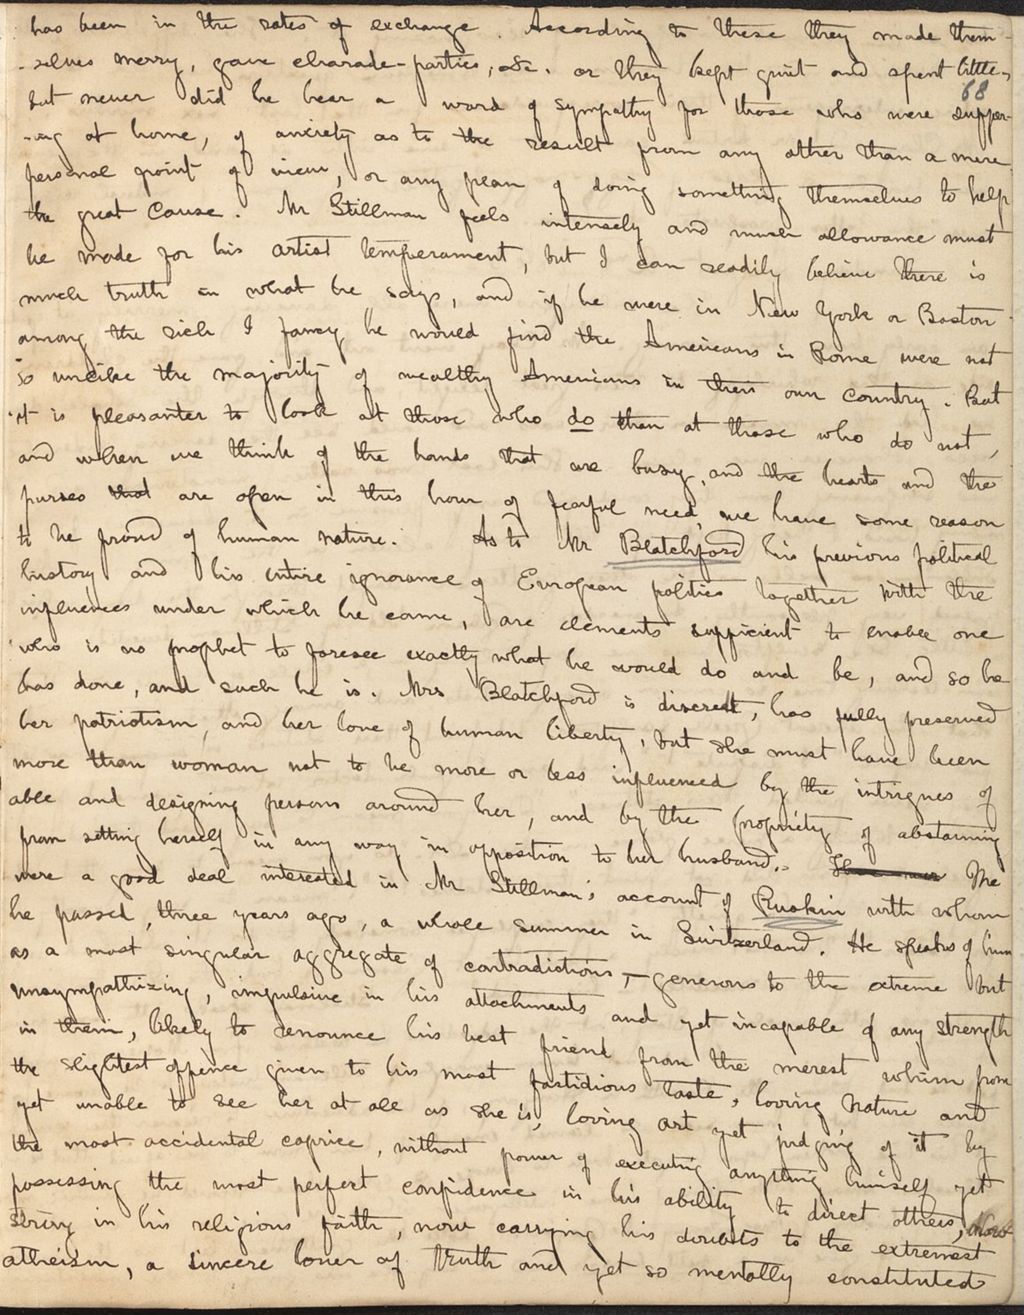 has been in the rates of exchange. According to these they made them-
-selves merry, gave charade-parties, &c. or they kept quiet and spent little,
68
but never did he hear a word of sympathy for those who were suffer-
-ing at home, of anxiety as to the result from any other than a mere
personal point of view, or any plan of doing something themselves to help
the great cause. Mr Stillman feels intensely and much allowance must
be made for his artist temperament, but I can readily believe there is
much truth in what he says, and if he were in New York or Boston
among the rich I fancy he would find the Americans in Rome were not
so unlike the majority of wealthy Americans in their own country. But
it is pleasanter to look at those who do than at those who do not,
and when we think of the hands that are busy, and the hearts and the
purses that are open in this hour of fearful need, we have some reason
to be proud of human nature. As to Mr Blatchford his previous political
history and his entire ignorance of European politics together with the
influences under which he came, are elements sufficient to enable one
who is no prophet to foresee exactly what he would do and be, and so he
has done, and such he is. Mrs Blatchford is discreet, has fully preserved
her patriotism, and her love of human liberty, but she must have been
more than woman not to be more or less influenced by the intrigues of
able and designing persons around her, and by the propriety of abstaining
from setting herself in any way in opposition to her husband. We
were a good deal interested in Mr Stillman's account of Ruskin with whom
he passed, three years ago, a whole summer in Switzerland. He speaks of him
as a most singular aggregate of contradictions,—generous to the extreme but
unsympathizing, impulsive in his attachments and yet incapable of any strength
in them, likely to denounce his best friend from the merest whim from
the slightest offence given to his most fastidious taste, loving nature and
yet unable to see her at all as she is, loving art yet judging of it by
the most accidental caprice, without power of executing anything himself yet
possessing the most perfect confidence in his ability to direct others, now
strong in his religious faith, now carrying his doubts to the extremest
atheism, a sincere lover of truth and yet so mentally constituted